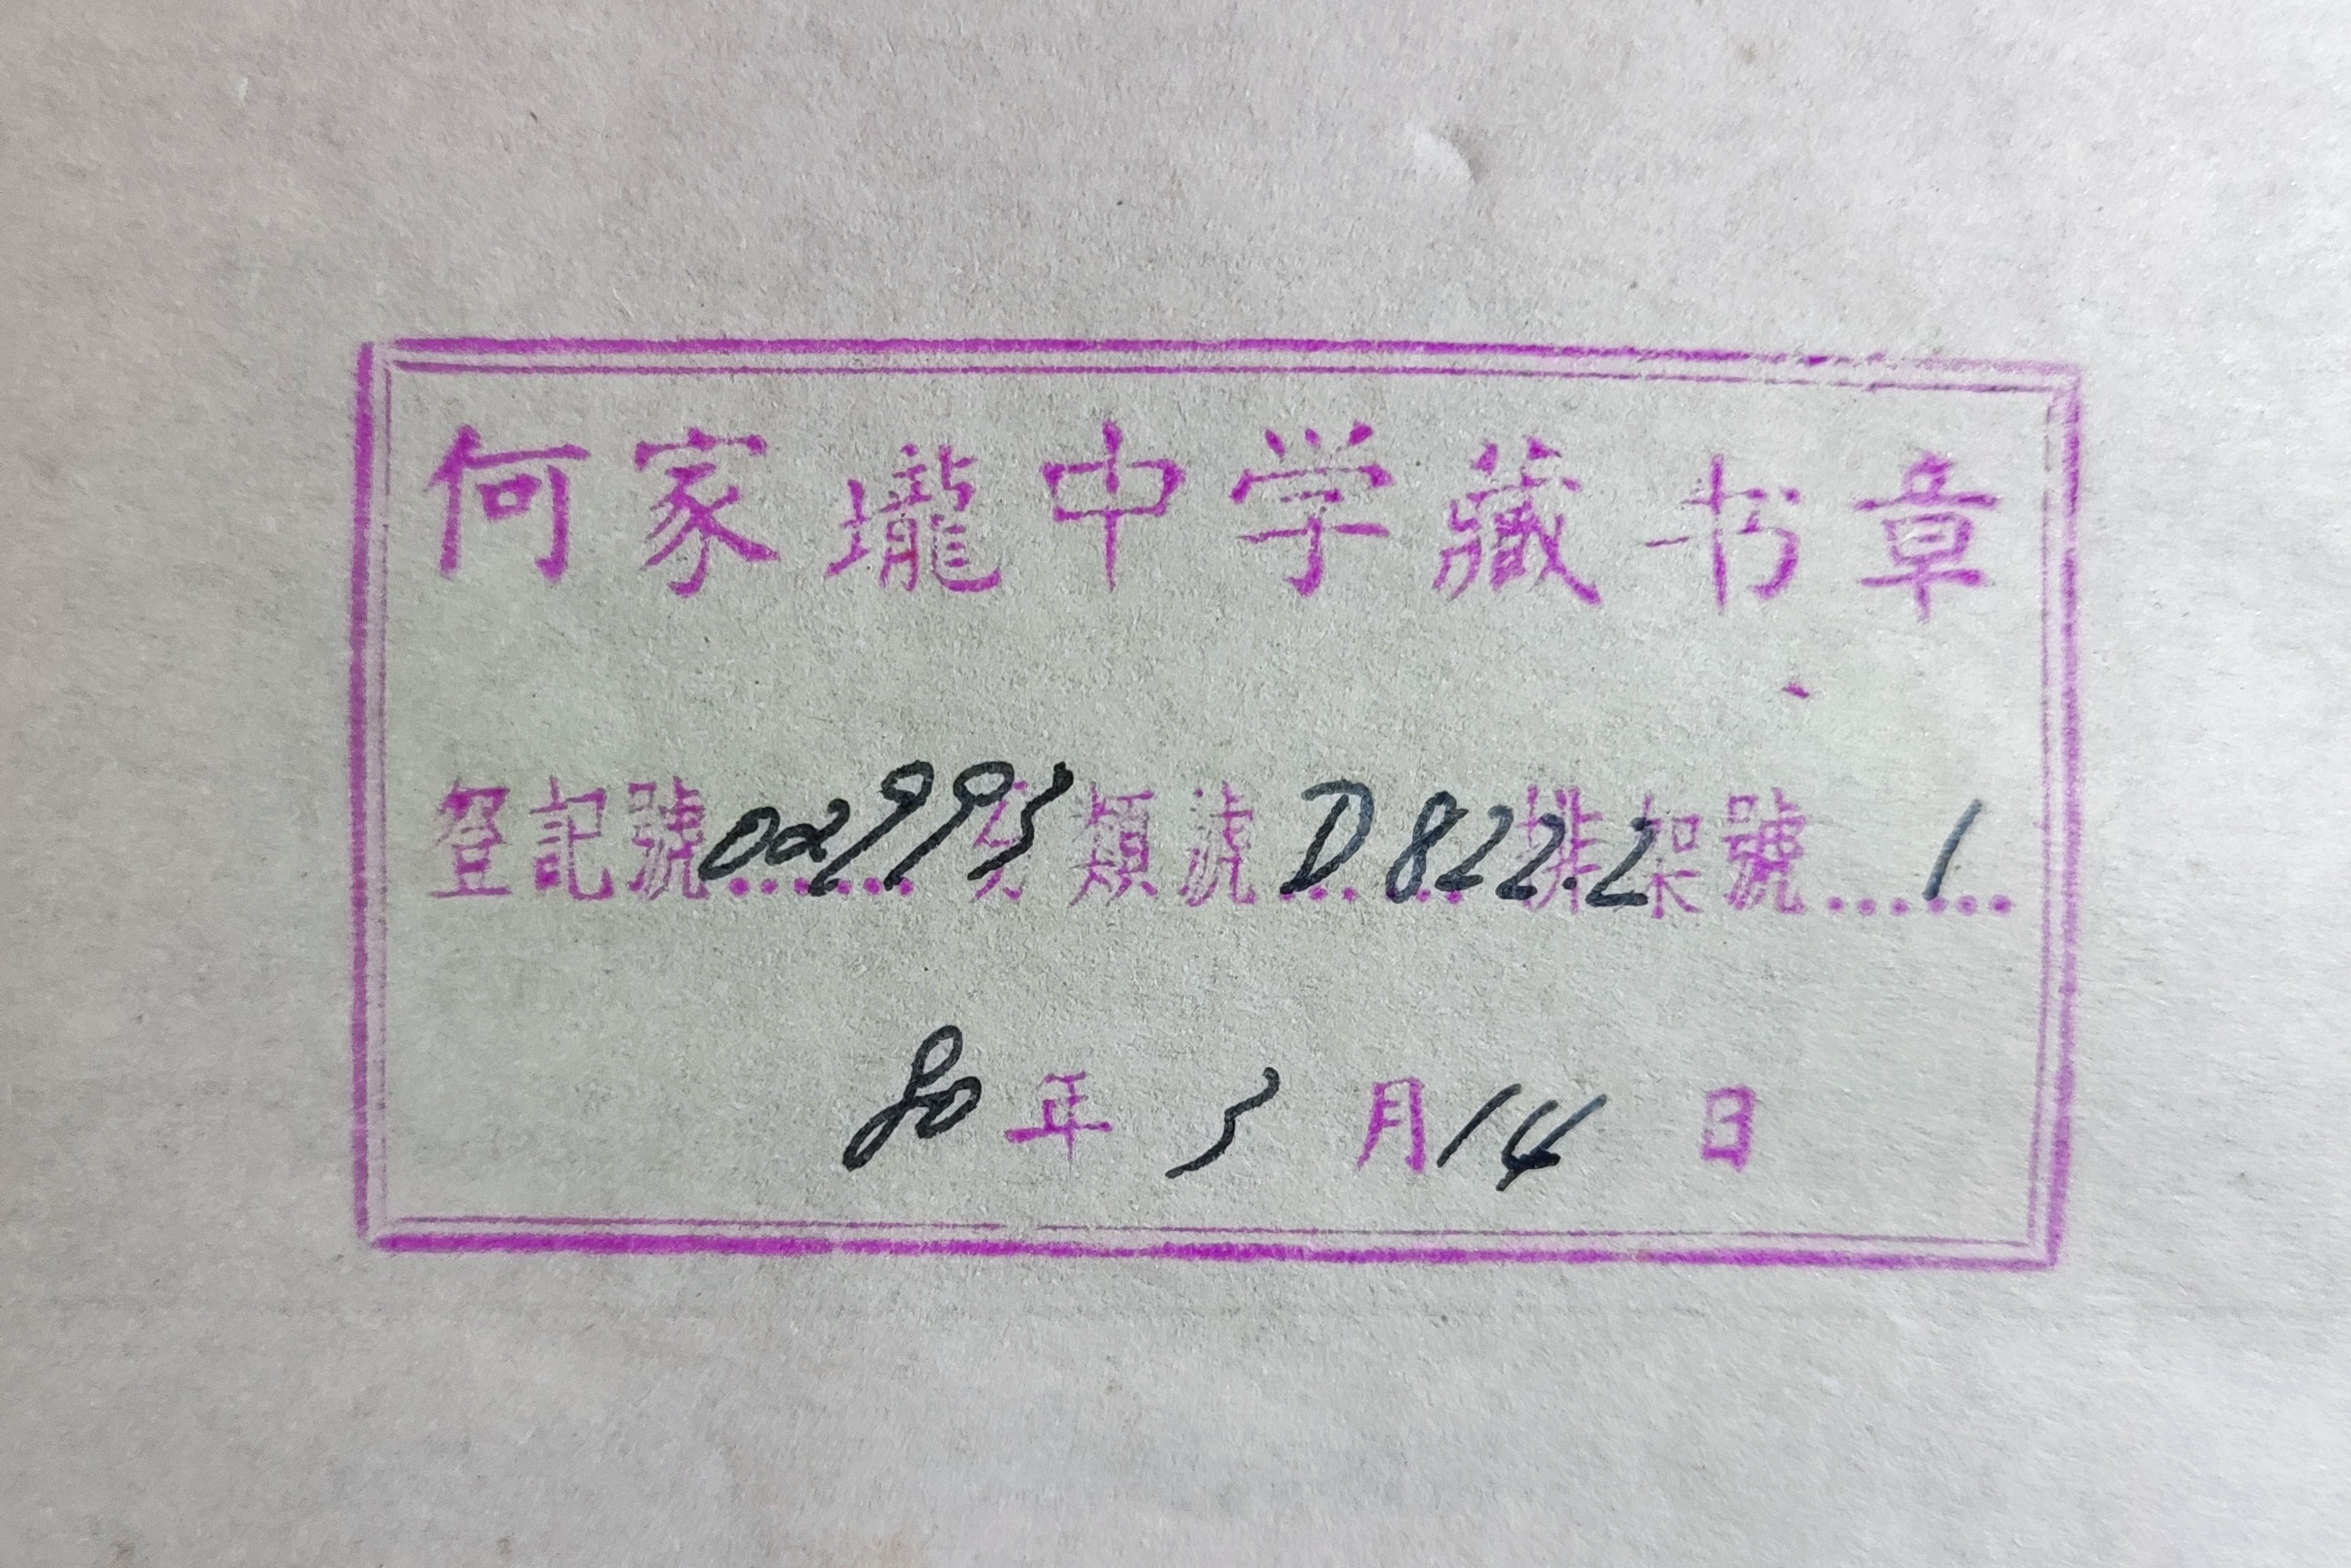 何家壠中学藏书章
登記號02993分類號D822.2排架號1
80年3月14日